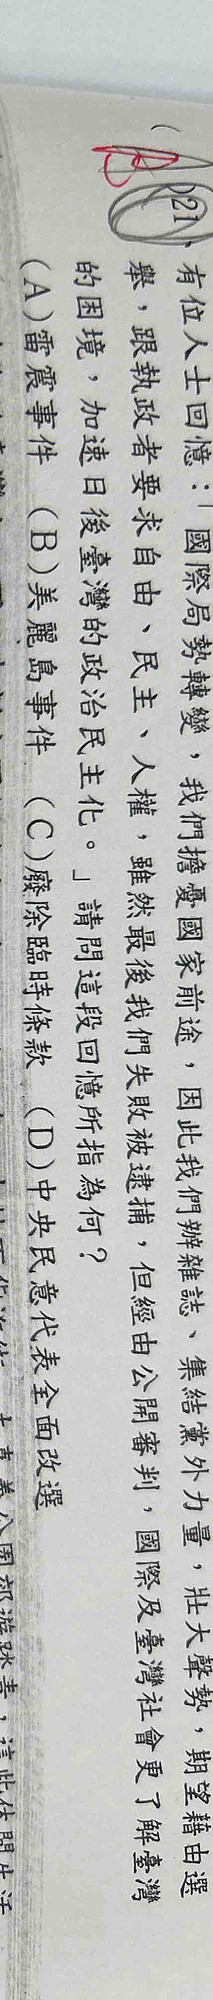 (B)21. 有位人士回憶：「國際局勢轉變，我們擔憂國家前途，因此我們辦雜誌、集結黨外力量，壯大聲勢，期望藉由選
舉，跟執政者要求自由、民主、人權，雖然最後我們失敗被逮捕，但經由公開審判，國際及臺灣社會更了解臺灣
的困境，加速日後臺灣的政治民主化。」請問這段回憶所指為何？
(A)雷震事件 (B)美麗島事件 (C)廢除臨時條款 (D)中央民意代表全面改選